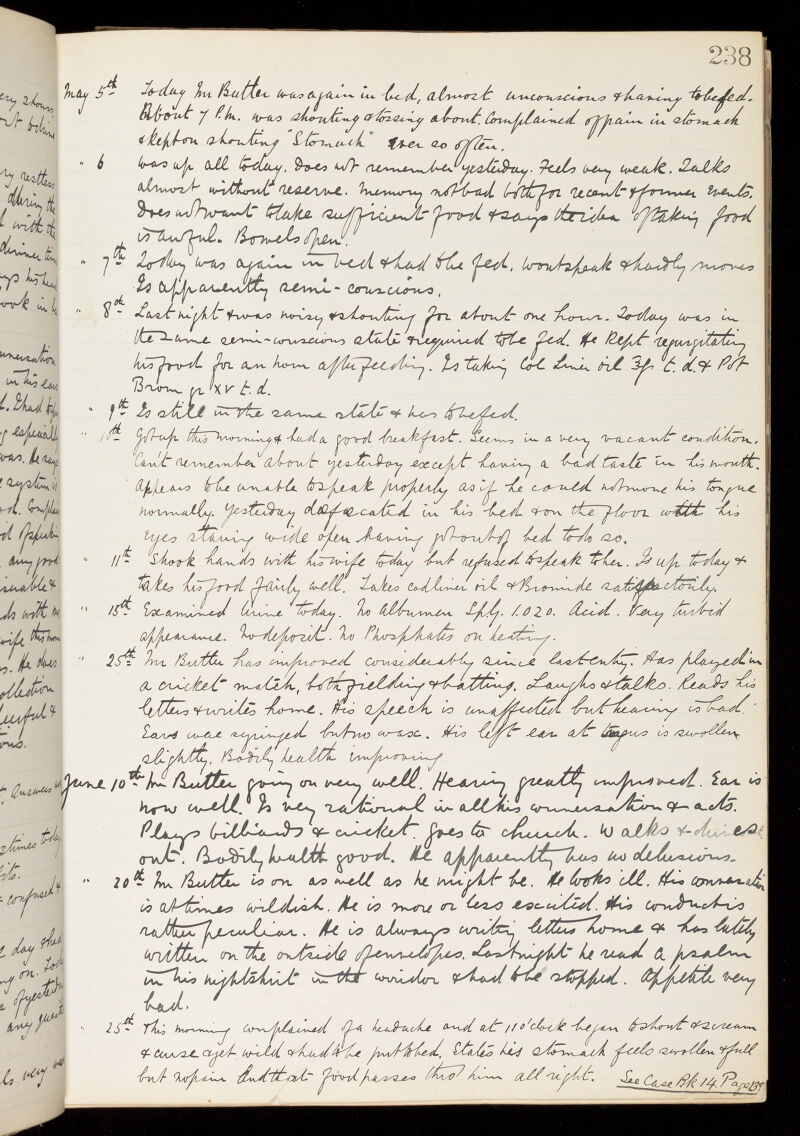 238
May 5th Today Mr Butter was again in bed, almost unconscious & having to be fed.
About 7 P.M. was shouting & tossing about. Complained of pain in stomach
& kept on shouting "Stomach" ever so often.
" 6 Was up all today. Does not remember yesterday. Feels very weak. Talks
almost without reserve. Memory not bad both for recent & former events.
Does not want to take sufficient food & says the idea of taking food
is awful. Bowels open.
" 7th Today was again in bed & had to be fed. Wont speak & hardly moves
Is apparently semi-conscious.
" 8th Last night & was noisy & shouting for about one hour. Today was in
the same semi-conscious state & required to be fed. He kept regurgitating
his food for an hour after feeding. Is taking Col Liver oil ʒj t.d. & Pot
Brom gr XV t.d.
" 9th Is still in the same state & has to be fed.
" 10th Got up this morning & had a good breakfast. Seems in a very vacant condition.
Can't remember about yesterday except having a bad taste in his mouth.
Appears to be unable to speak properly as if he could not move his tongue
normally. Yesterday defecated in his bed & on the floor with his
eyes staring wide open having got out of bed to do so.
" 11th Shook hands with his wife today but refused to speak to her. Is up today &
takes his food fairly well. Takes cod liver oil & Bromide satisfactorily.
" 15th Examined Urine today. No Albumen Sp.g. 1.020. Acid. Very turbid
appearance. No deposit. No Phosphates on heating.
" 25th Mr Butter has improved considerably since last entry. Has played in
a cricket match, both fielding & batting. Laughs & talks. Reads his
letters & writes home. His speech is unaffected but hearing is bad.
Ears were syringed but no wax. His left ear at tragus is swollen
slightly. Bodily health improving
June 10th Mr Butter going on very well. Hearing greatly improved. Ear is
now well. Is very rational in all his conversation & acts.
Plays billiards & cricket. Goes to church. Walks & drives
out. Bodily health good. He apparently has no delusions.
" 20th Mr Butter is on as well as he might be. He looks ill. His conversation
is at times wildish. He is more or less excited. His conduct is
rather peculiar. He is always writing letters home & has lately
written on the outside of envelopes. Last night he read a psalm
in his nightshirt in the corridor & had to be stopped. Appetite very
bad.
" 25th This morning complained of a headache and at 11 o'clock began to shout & scream
& curse & get wild & had to be put to bed. States his stomach feels swollen & full
but no pain and that food passes thro' him all right. See Case Bk 14. Page